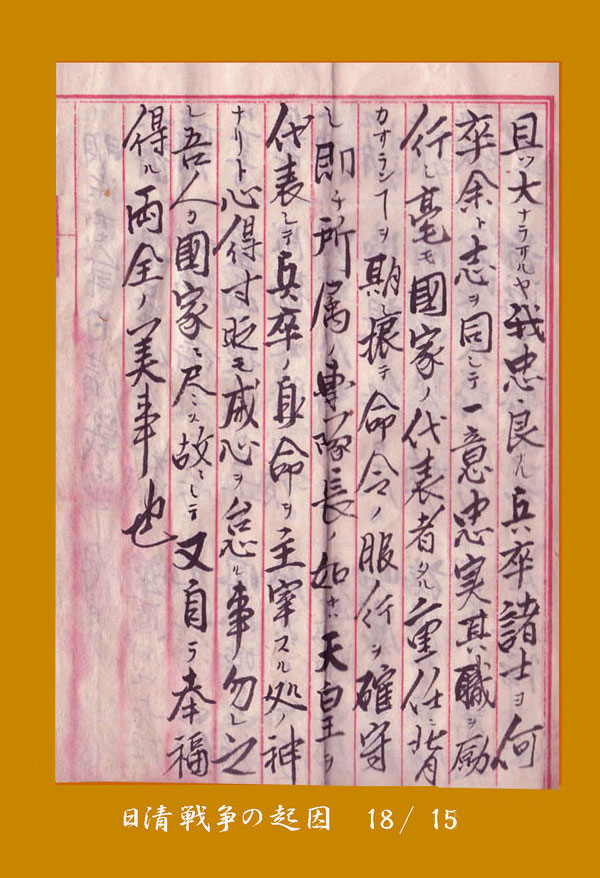 且ツ大ナラサルヤ我忠良ナル兵卒諸士ヨ何
卒余ト志ヲ同シテ一意忠実其職ヲ励
行シ毫モ國家ノ代表者タル重任ニ背
カサランヿヲ期シ攘テ命令ノ服行ヲ確守
シ即チ所属ノ専隊長ノ如キハ天皇ヲ
代表シテ兵卒ノ身命ヲ主宰スル処ノ神
ナリト心得寸時モ戒心ヲ怠ル事勿レ之
レ吾人カ國家ニ尽ス故ニシテ又自ラ幸福
得ル両全ノ美事也
日清戦争の起因 18/ 15